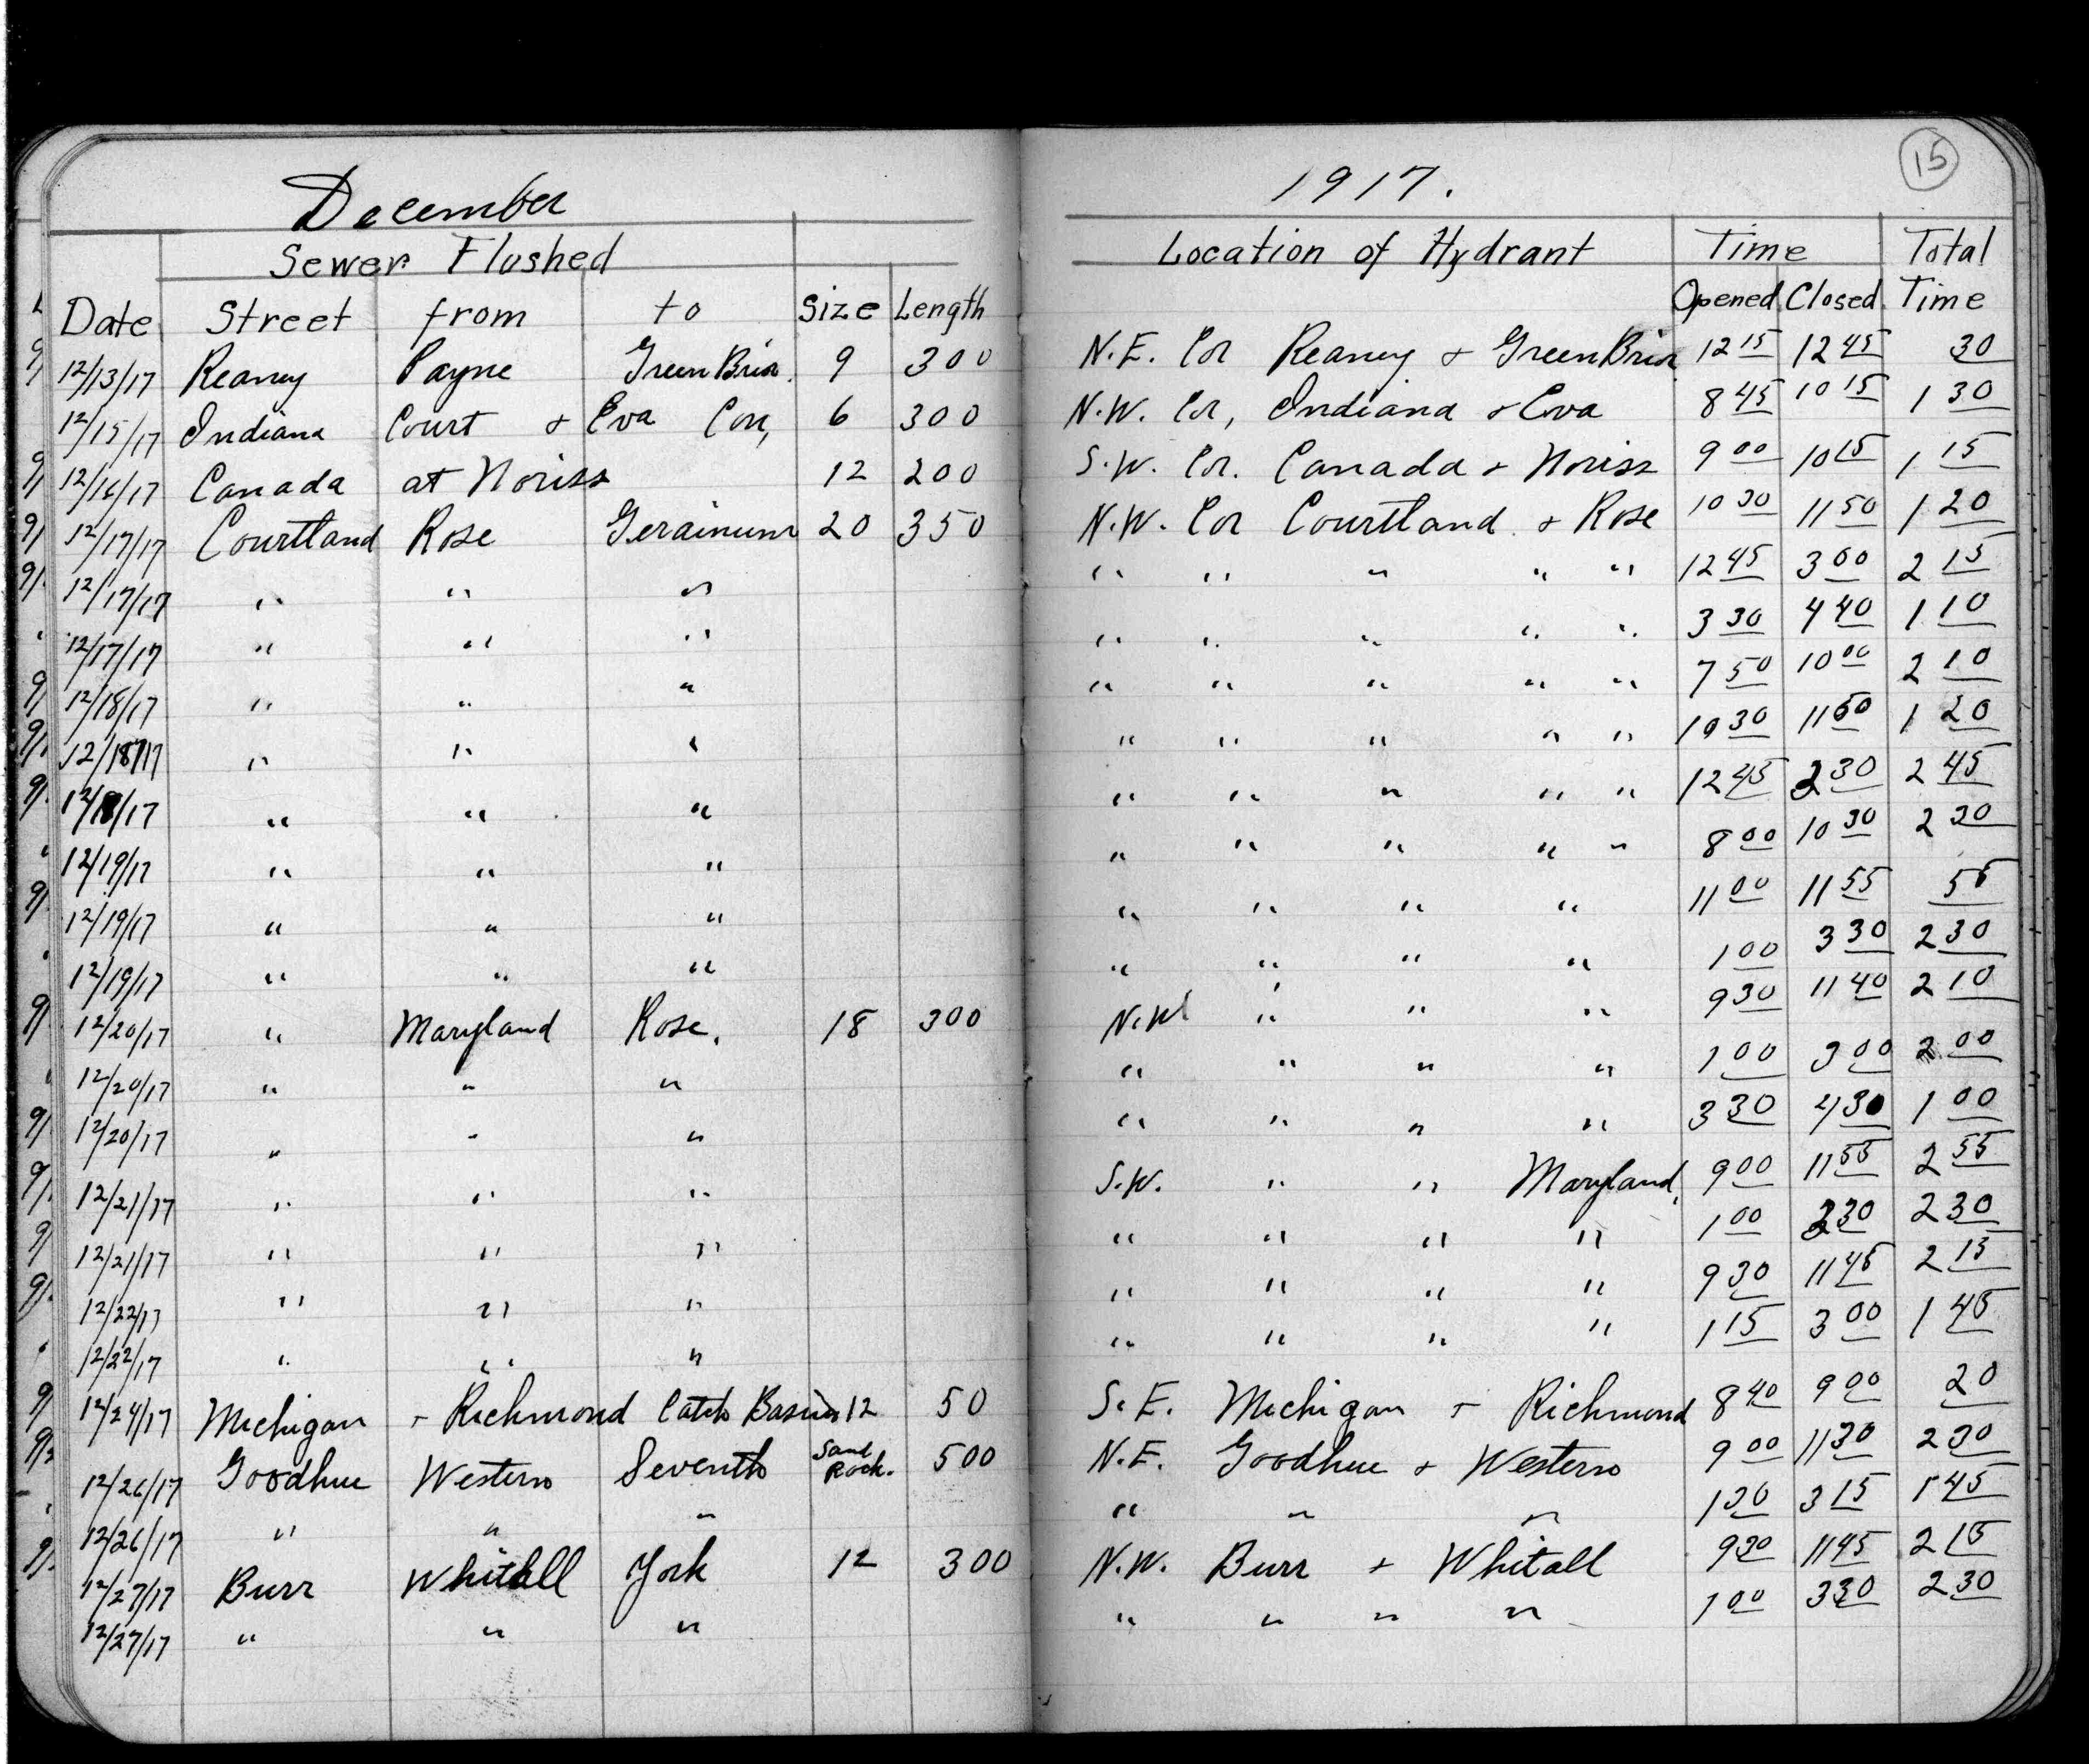 15
December 1917.
Sewer Flushed Location of Hydrant Time Total
Date Street from to Size Length Opened Closed Time
12/13/17 Reaney Payne GreenBrier 9 300 N.E. Cor Reaney + GreenBrier 12 15 12 45 30
12/15/17 Indiana Court + Eva Cor, 6 300 N.W. Cor, Indiana + Eva 8 45 10 15 1 30
12/16/17 Canada at Noriss 12 200 S.W. Cor. Canada + Noriss 9 00 10 15 1 15
12/17/17 Courtland Rose Gerainum 20 350 N.W. Cor Courtland + Rose 10 30 11 50 1 20
12/17/17 " " " " " " " " 12 45 3 00 2 15
12/17/17 " " " " " " " " 3 30 4 40 1 10
12/18/17 " " " " " " " " 7 50 10 00 2 10
12/18/17 " " " " " " " " 10 30 11 50 1 20
12/18/17 " " " " " " " " 12 45 2 30 2 45
12/19/17 " " " " " " " " 8 00 10 30 2 30
12/19/17 " " " " " " " 11 00 11 55 55
12/19/17 " " " " " " " 1 00 3 30 2 30
12/20/17 " Maryland Rose. 18 300 N.W " " " 9 30 11 40 2 10
12/20/17 " " " " " " " 1 00 3 00 2 00
12/20/17 " " " " " " " 3 30 4 30 1 00
12/21/17 " " " S.W. " " Maryland, 9 00 11 55 2 55
12/21/17 " " " " " " " 1 00 3 30 2 30
12/22/17 " " " " " " " 9 30 11 45 2 15
12/22/17 " " " " " " " 1 15 3 00 1 45
12/24/17 Michigan + Richmond Catch Basin 12 50 S.E. Michigan + Richmond 8 40 9 00 20
12/26/17 Goodhue Western Seventh Sand Rock. 500 N.E. Goodhue + Western 9 00 11 30 2 30
12/26/17 " " " " " " 1 30 3 15 1 45
12/27/17 Burr Whitall York 12 300 N.W. Burr + Whitall 9 30 11 45 2 15
12/27/17 " " " " " " " 1 00 3 30 2 30